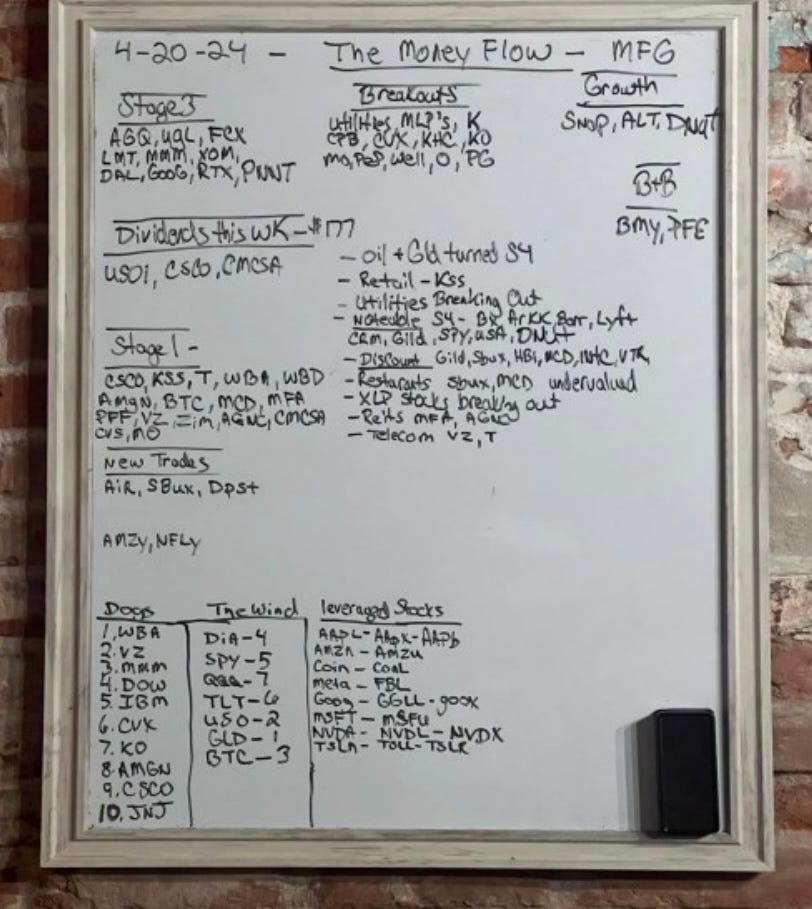 4-20-24 - The Money Flow - MFG
Stage 3
AGQ, UGL, FCX
LMT, MMM, XOM,
DAL, GOOG, RTX, PNNT
Breakouts
Utilities, MLP's, K
CPB, CVX, KHC, KO
MO, PEP, Well, O, PG
Growth
SNAP, ALT, DNUT
B+B
BMY, PFE
Dividends this WK - $177
USOI, CSCO, CMCSA
- Oil + Gld turned S4
- Retail - KSS
- Utilities Breaking Out
- Noteable S4 - BX, ARKK, Barr, Lyft
CRM, Gild, SPY, USA, DNUT
- Discount Gild, Sbux, HBI, MCD, INTC, VTR
- Restarants Sbux, MCD undervalued
- XLP stocks breaking out
- Reits MFA, AGNC
- Telecom VZ, T
Stage 1 -
CSCO, KSS, T, WBA, WBD
AMGN, BTC, MCD, MFA
PFF, VZ, Zim, AGNC, CMCSA
CVS, MO
New Trades
AIR, SBux, Dpst
AMZY, NFLY
Dogs
1. WBA
2. VZ
3. MMM
4. DOW
5. IBM
6. CVX
7. KO
8. AMGN
9. CSCO
10. JNJ
The Wind
DIA - 4
SPY - 5
QQQ - 7
TLT - 6
USO - 2
GLD - 1
BTC - 3
leveraged Stocks
AAPL - AAPX - AAPB
AMZN - AMZU
Coin - CONL
Meta - FBL
Goog - GGLL - goox
MSFT - MSFU
NVDA - NVDL - NVDX
TSLA - TSLL - TSLR